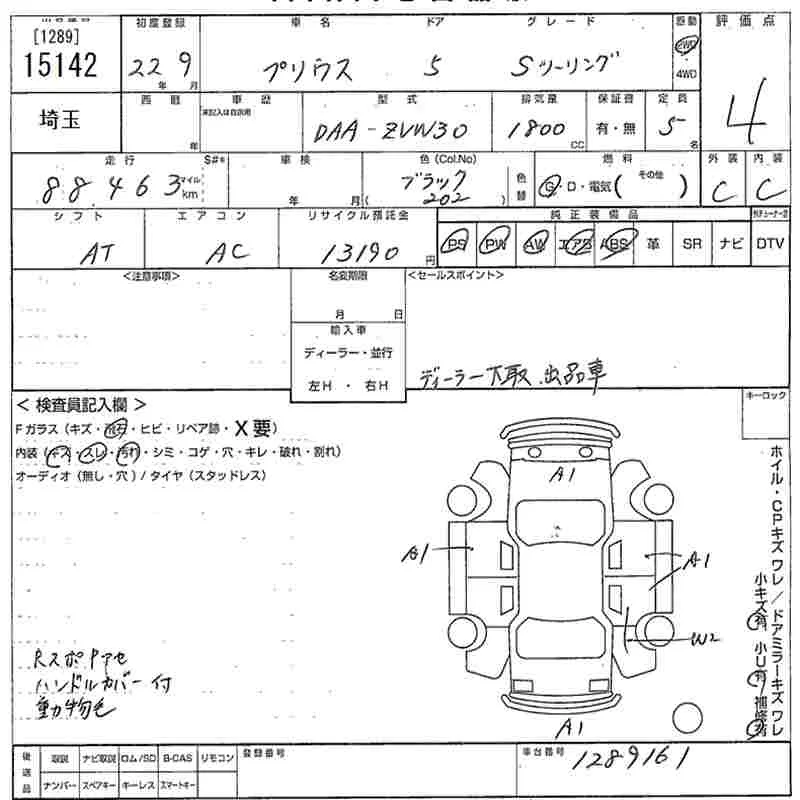 [1289]
15142
初度登録
22年 9月
車名
プリウス
ドア
5
グレード
Sツーリング
駆動
2WD
4WD
評価点
4
埼玉
西暦
年
車歴
未記入は自家用
型式
DAA-ZVW30
排気量
1800
CC
保証書
有・無
定員
5
名
走行
88,463
マイル
km
S#*
車検
年 月
色(Col.No)
ブラック
( 202 )
色替
燃料
G・D・電気( その他 )
外装
C
内装
C
シフト
AT
エアコン
AC
リサイクル預託金
13190円
純正装備品
PS
PW
AW
エアB
ABS
革
SR
ナビ
DTV
<注意事項>
名変期限
月 日
輸入車
ディーラー・並行
左H ・ 右H
<セールスポイント>
ディーラー下取 出品車
キーロック
<検査員記入欄>
Fガラス(キズ・飛石・ヒビ・リペア跡・X要)
内装(キズ・スレ・汚れ・シミ・コゲ・穴・キレ・破れ・割れ)
オーディオ(無し・穴)/タイヤ(スタッドレス)
A1
A1
A1
W2
A1
ホイル・CPキズ ワレ / ドアミラーキズ ワレ
小キズ有 小U有 補修有
RスポPアセ
ハンドルカバー付
動物毛
後送品
取説
ナビ取説
ロム/SD
B-CAS
リモコン
ナンバー
スペアキー
キーレス
スマートキー
登録番号
車台番号
1289161